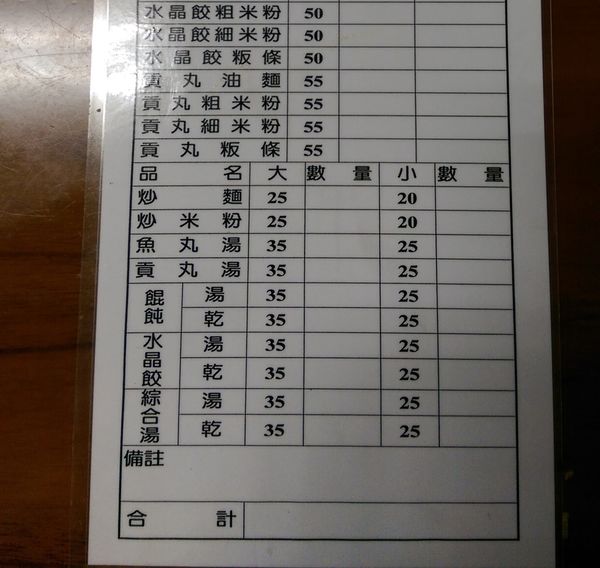 水晶餃粗米粉 50
水晶餃細米粉 50
水晶餃粄條 50
貢丸油麵 55
貢丸粗米粉 55
貢丸細米粉 55
貢丸粄條 55
品名 大 數量 小 數量
炒麵 25 20
炒米粉 25 20
魚丸湯 35 25
貢丸湯 35 25
餛飩 湯 35 25
乾 35 25
水晶餃 湯 35 25
乾 35 25
綜合湯 湯 35 25
乾 35 25
備註
合計